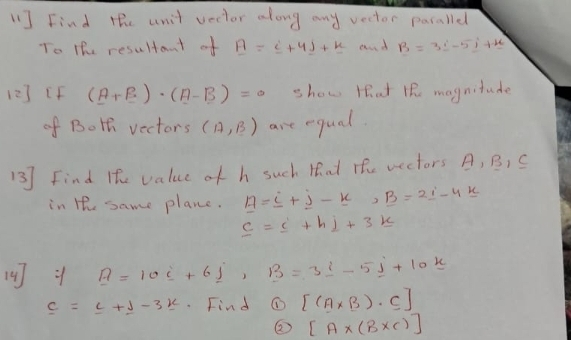 11] Find the unit vector along any vector parallel
To the resultant of A = i+4j+k and B = 3i-5j+k
12] If (A+B) . (A-B) = 0 show that the magnitude
of Both vectors (A,B) are equal.
13] Find the value of h such that the vectors A, B, C
in the same plane. A = i + j - k , B = 2i - 4k
C = i + hj + 3k
14] if A = 10i + 6j , B = 3i - 5j + 10k
C = i + j - 3k . Find ① [(A×B) . C]
② [A×(B×C)]